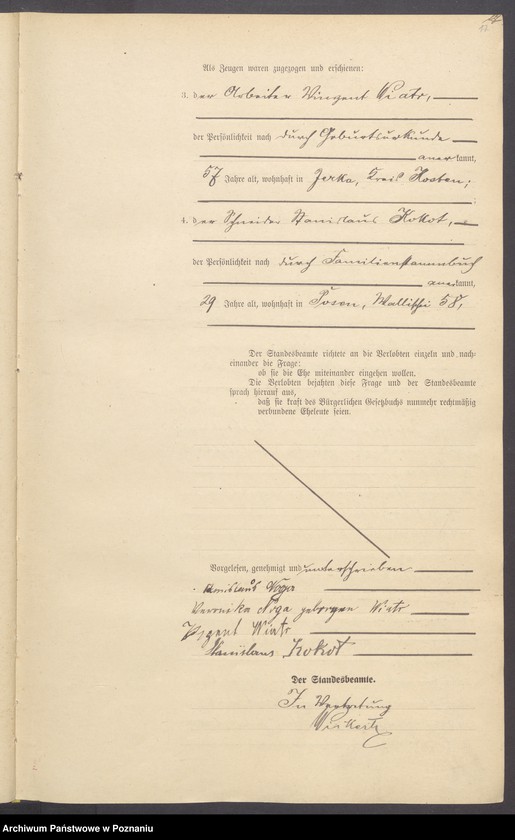 12
Als Zeugen waren zugezogen und erschienen:
3. der Arbeiter Vinzent Wiatr,
der Persönlichkeit nach durch Geburtsurkunde
anerkannt,
57 Jahre alt, wohnhaft in Jerka, Kreis Kosten;
4. der Schneider Stanislaus Kokot,
der Persönlichkeit nach durch Familienstammbuch
anerkannt,
29 Jahre alt, wohnhaft in Posen, Wallischei 58,
Der Standesbeamte richtete an die Verlobten einzeln und nach-
einander die Frage:
ob sie die Ehe miteinander eingehen wollen.
Die Verlobten bejahten diese Frage und der Standesbeamte
sprach hierauf aus,
daß sie kraft des Bürgerlichen Gesetzbuchs nunmehr rechtmäßig
verbundene Eheleute seien.
Vorgelesen, genehmigt und unterschrieben
Stanislaus
Veronika geborene Wiatr
Wiatr
Stanislaus Kokot
Der Standesbeamte.
In Vertretung
Archiwum Państwowe w Poznaniu